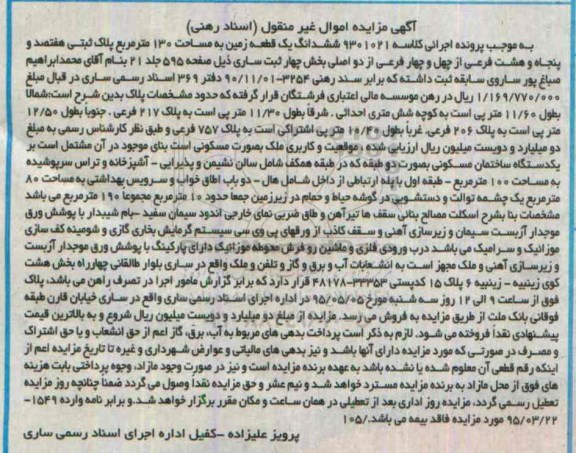 آگهی مزایده اموال غیر منقول (اسناد رهنی)
به موجب پرونده اجرائی کلاسه ۹۳۰۱۰۲۱ ششدانگ یک قطعه زمین به مساحت ۱۳۰ مترمربع پلاک ثبتی هفتصد و
پنجاه و هشت فرعی از چهل و چهار فرعی از دو اصلی بخش چهار ثبت ساری ذیل صفحه ۵۹۵ جلد ۲۱ بنام آقای محمدابراهیم
صباغ پور ساروی سابقه ثبت داشته که برابر سند رهنی ۳۲۵۴-۹۰/۱۱/۰۱ دفتر ۳۶۹ اسناد رسمی ساری در قبال مبلغ
۱/۱۶۹/۷۷۰/۰۰۰ ریال در رهن موسسه مالی اعتباری فرشتگان قرار گرفته که حدود مشخصات پلاک بدین شرح است:شمالاً
بطول ۱۱/۶۰ متر پی است به کوچه شش متری احداثی . شرقاً بطول ۱۱/۳۰ متر پی است به پلاک ۲۱۷ فرعی . جنوباً بطول ۱۲/۵۰
متر پی است به پلاک ۲۰۶ فرعی. غرباً بطول ۱۰/۲۰ متر پی اشتراکی است به پلاک ۷۵۷ فرعی و طبق نظر کارشناس رسمی به مبلغ
دو میلیارد و دویست میلیون ریال ارزیابی شده . موقعیت و کاربری ملک بصورت مسکونی است بنای موجود در آن مشتمل است بر
یکدستگاه ساختمان مسکونی بصورت دو طبقه که در طبقه همکف شامل سالن نشیمن و پذیرایی - آشپزخانه و تراس سرپوشیده
به مساحت ۱۰۰ مترمربع - طبقه اول با پله ارتباطی از داخل شامل هال - دو باب اطاق خواب و سرویس بهداشتی به مساحت ۸۰
مترمربع یک چشمه توالت و دستشویی در گوشه حیاط و حمام در زیرزمین جمعاً حدود ۱۰ مترمربع مجموعاً ۱۹۰ مترمربع می باشد
مشخصات بنا بشرح اسکلت مصالح بنائی سقف ها تیرآهن و طاق ضربی نمای خارجی اندود سیمان سفید -بام شیبدار با پوشش ورق
موجدار آزبست سیمان و زیرسازی آهنی و سقف کاذب از ورقهای پی وی سی سیستم گرمایش بخاری گازی و شومینه کف سازی
موزائیک و سرامیک می باشد درب ورودی فلزی و ماشین رو فرش محوطه موزائیک دارای پارکینگ با پوشش ورق موجدار آزبست
و زیرسازی آهنی و ملک مجهز است به انشعابات آب و برق و گاز و تلفن و ملک واقع در ساری بلوار طالقانی چهارراه بخش هشت
کوی زینبیه - زینبیه ۶ پلاک ۱۵ کدپستی ۳۳۳۵۳-۴۸۱۷۸ قرار دارد که برابر گزارش مأمور اجرا در تصرف راهن می باشد، پلاک
فوق از ساعت ۹ الی ۱۲ روز سه شنبه مورخ ۹۵/۰۵/۰۵ در اداره اجرای اسناد رسمی ساری واقع در ساری خیابان قارن طبقه
فوقانی بانک ملت از طریق مزایده به فروش می رسد. مزایده از مبلغ دو میلیارد و دویست میلیون ریال شروع و به بالاترین قیمت
پیشنهادی نقداً فروخته می شود. لازم به ذکر است پرداخت بدهی های مربوط به آب، برق، گاز اعم از حق انشعاب و یا حق اشتراک
و مصرف در صورتی که مورد مزایده دارای آنها باشد و نیز بدهی های مالیاتی و عوارض شهرداری و غیره تا تاریخ مزایده اعم از
اینکه رقم قطعی آن معلوم شده یا نشده باشد به عهده برنده مزایده است و نیز در صورت وجود مازاد، وجوه پرداختی بابت هزینه
های فوق از محل مازاد به برنده مزایده مسترد خواهد شد و نیم عشر و حق مزایده نقداً وصول می گردد ضمناً چنانچه روز مزایده
تعطیل رسمی گردد، مزایده روز اداری بعد از تعطیلی در همان ساعت و مکان مقرر برگزار خواهد شد.و برابر نامه وارده ۱۵۴۹-
۹۵/۰۳/۲۲ مورد مزایده فاقد بیمه می باشد./۱۰۵
پرویز علیزاده -کفیل اداره اجرای اسناد رسمی ساری